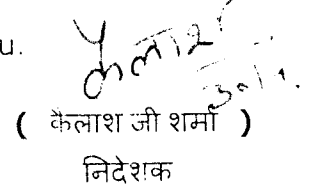 u.
कैलाश
( कैलाश जी शर्मा )
निदेशक